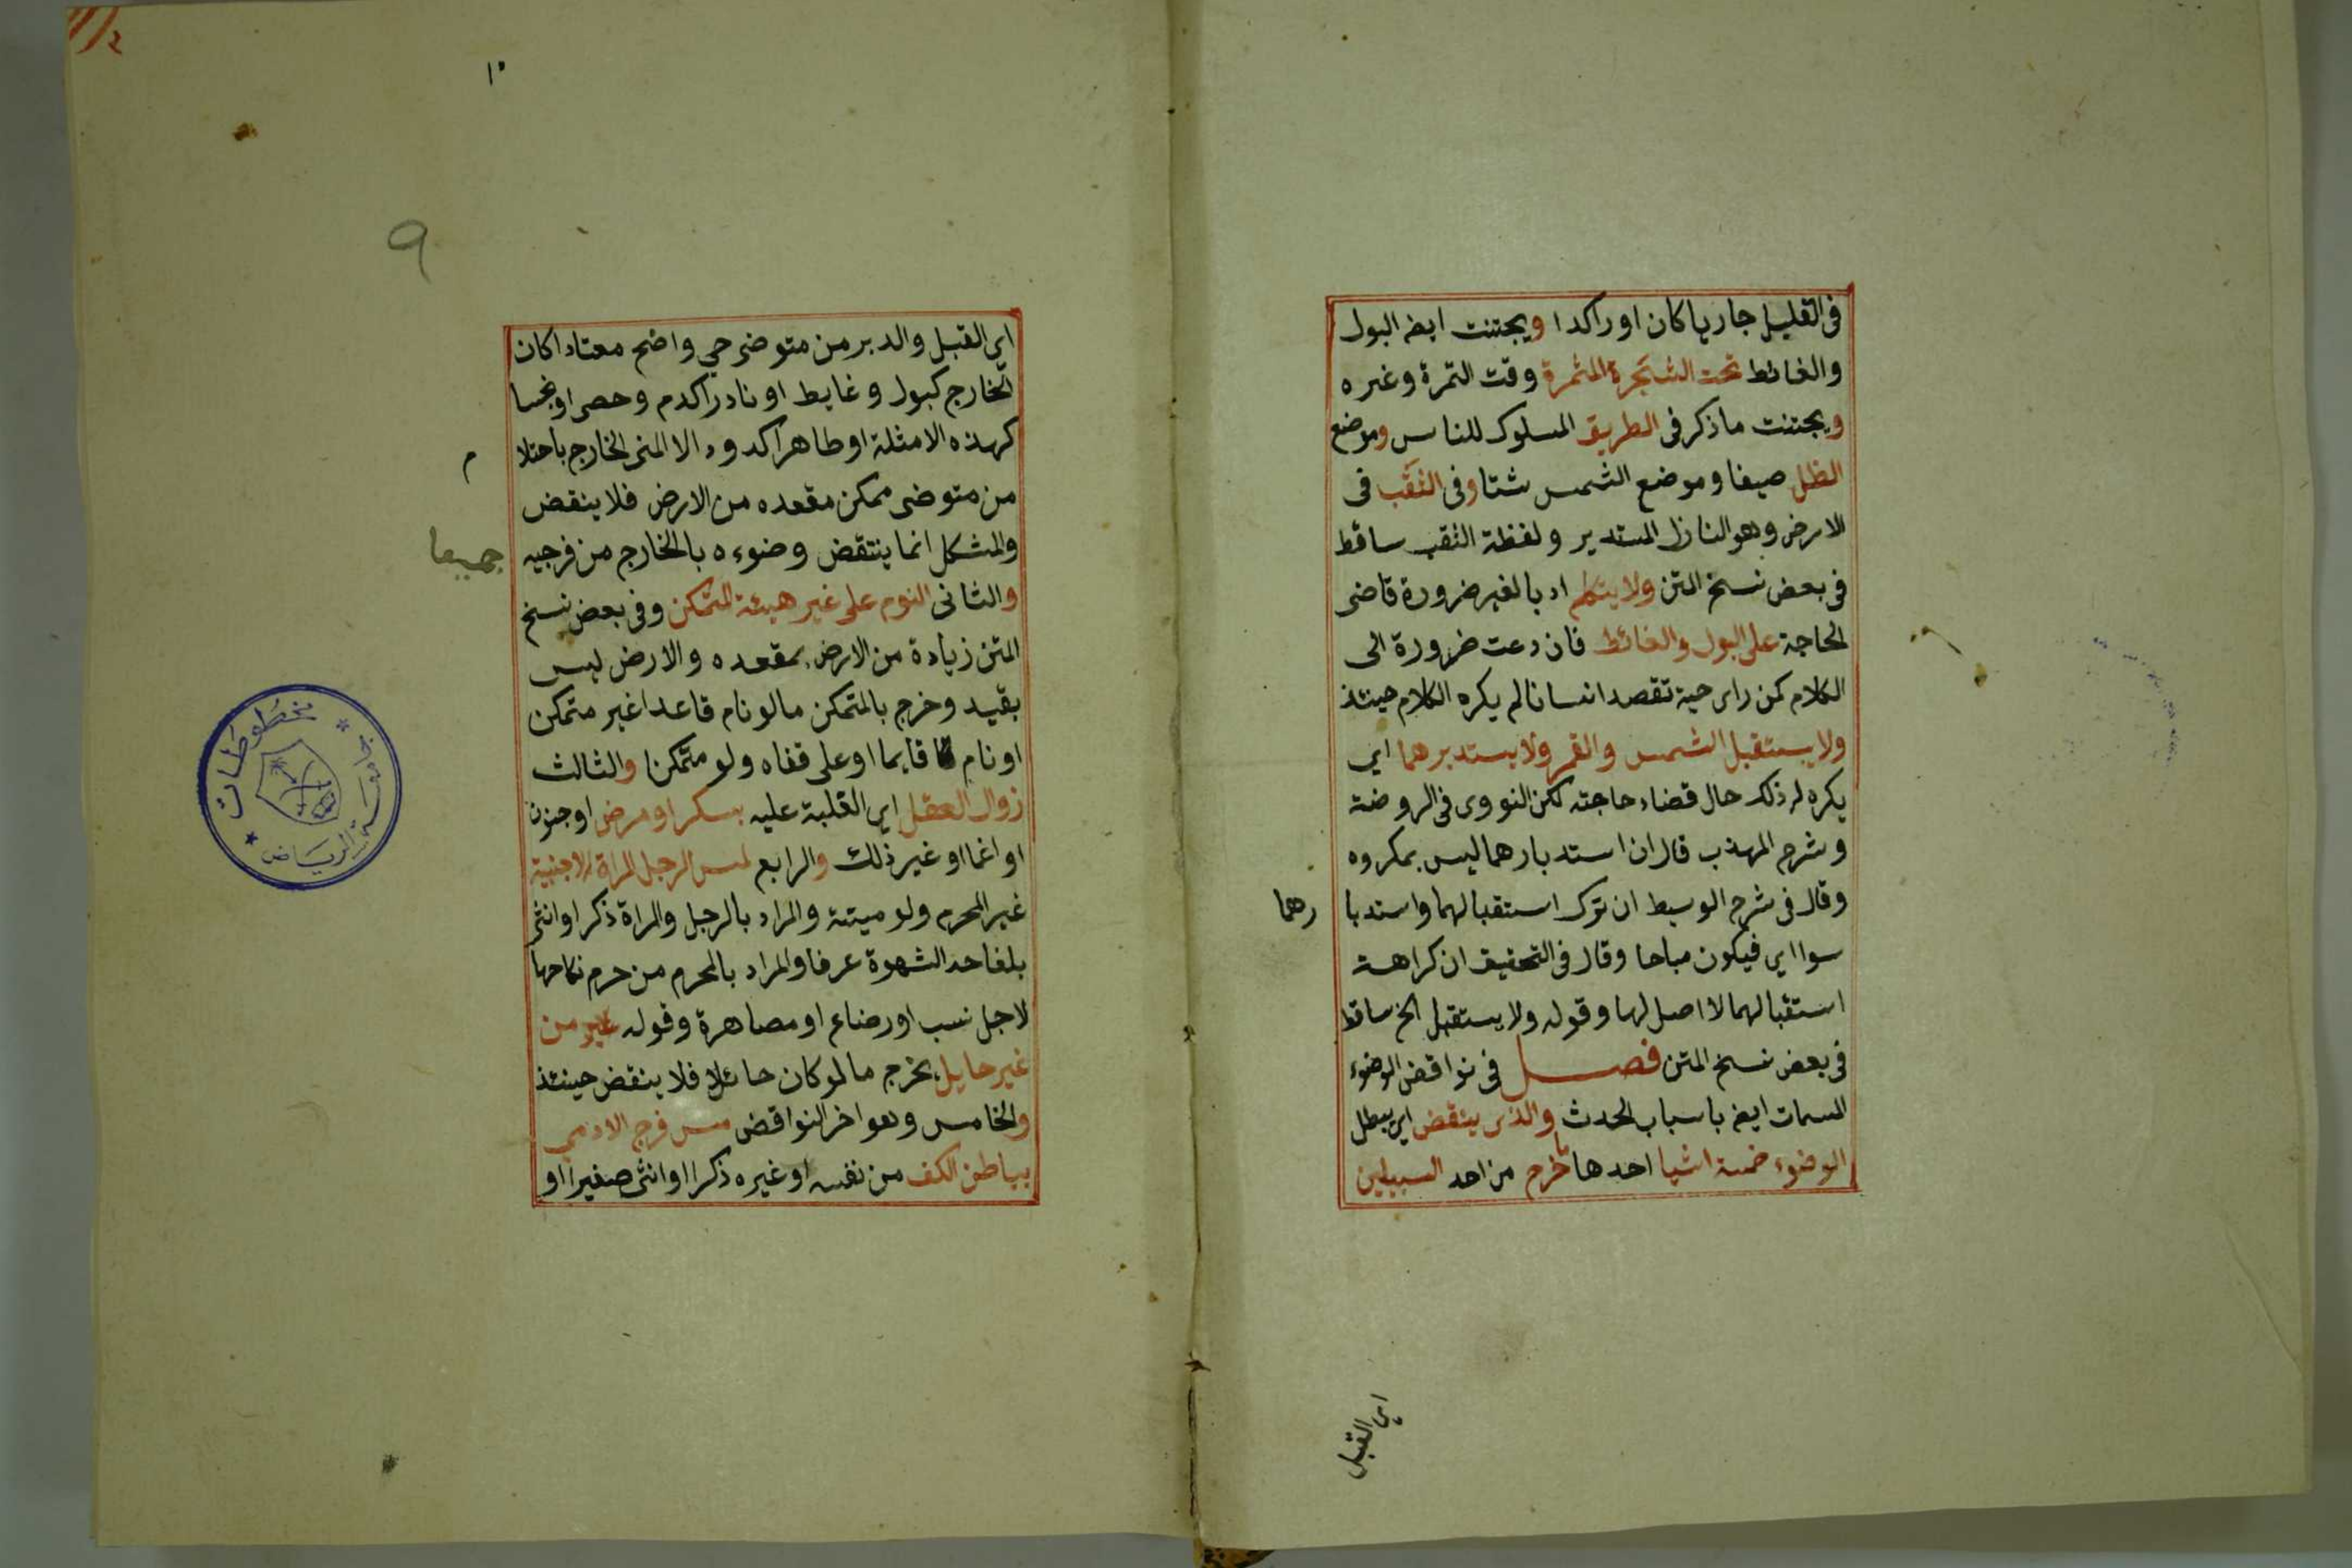 في القليل جاريا كان او راكدا ويجتنت ايضه البول
والغائط تحت الشجرة المثمرة وقت الثمرة وغيره
ويجتنت ما ذكر في الطريق المسلوك للناس وموضع
الظل صيفا وموضع الشمس شتا وفي الثقب في
الارض وهو النازل المستدير ولفظة الثقب ساقط
في بعض نسخ المتن ولا يتكلم ادبا لغير ضرورة قاضى
الحاجة على البول والغائط فان دعت ضرورة الى
الكلام كمن راى حية تقصد انسانا لم يكره الكلام حينئذ
ولا يستقبل الشمس والقمر ولا يستدبرهما اي
يكره له ذلك حال قضاء حاجته لكن النووى في الروضة
وشرح المهذب قال ان استدبارهما ليس بمكروه
وقال في شرح الوسيط ان ترك استقبالهما واستدبا رهما
سوا اي فيكون مباحا وقال في التحقيق ان كراهة
استقبالهما لا اصل لها وقوله ولا يستقبل الخ ساقط
في بعض نسخ المتن فصل في نواقض الوضوء
المسمات ايضه باسباب الحدث والذى ينقض اي يبطل
الوضوء خمسة اشيا احدها ما خرج من احد السبيلين
اي القبل
١٠
٩
اي القبل والدبر من متوضى حي واضح معتادا كان
الخارج كبول وغايط او نادرا كدم وحصى او نجسا
كهذه الامثلة او طاهرا كدود الا المنى الخارج باحتلا م
من متوضى ممكن مقعده من الارض فلا ينقض
والمشكل انما ينتقض وضوءه بالخارج من فرجيه جميعا
والثانى النوم على غير هيئة المتمكن وفي بعض نسخ
المتن زيادة من الارض بمقعده والارض ليس
بقيد وخرج بالمتمكن ما لو نام قاعدا غير متمكن
او نام قايما او على قفاه ولو متمكنا والثالث
زوال العقل اي الغلبة عليه بسكر او مرض او جنون
او اغما او غير ذلك والرابع لمس الرجل المراة الاجنبية
غير المحرم ولو ميتة والمراد بالرجل والمراة ذكر او انثى
بلغا حد الشهوة عرفا والمراد بالمحرم من حرم نكاحها
لاجل نسب او رضاع او مصاهرة وقوله غير من
غير حايل يخرج ما لو كان حائلا فلا ينقض حينئذ
والخامس وهو اخر النواقض مس فرج الادمي
بباطن الكف من نفسه او غيره ذكرا او انثى صغيرا او
مخطوطات
جامعة الرياض